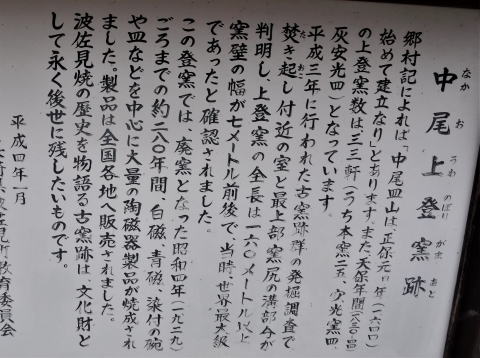 中尾上登窯跡
なかおうわのぼりがまあと
郷村記によれば「中尾皿山は、正保元年(一六四四)
始めて建立なり」とあります。また天保年間
の上登窯数は三三軒(うち本窯二五、
灰安光四)となっています。
平成三年に行われた古窯跡群の発掘調査で
焚き起し付近の室と最上部窯尻の溝部分が
判明し、上登窯の全長は一六〇メートル以上
窯壁の幅が七メートル前後で、当時、世界最大級
であったと確認されました。
この登窯では、廃窯となった昭和四年(一九二九)
ごろまでの約二八〇年間、白磁、青磁、染付の碗
や皿などを中心に大量の陶磁器製品が焼成され
ました。製品は全国各地へ販売されました。
波佐見焼の歴史を物語る古窯跡は、文化財と
して永く後世に残したいものです。
平成四年一月
教育委員会